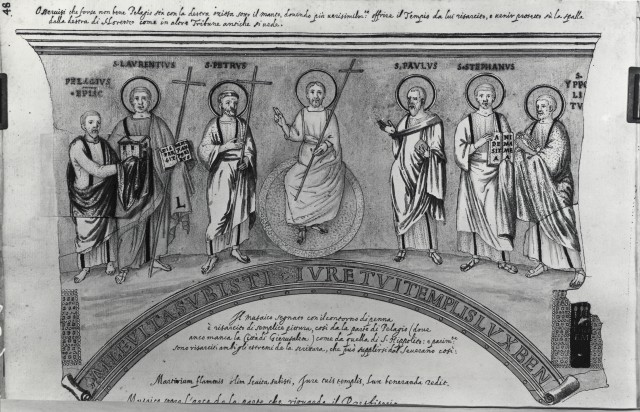 48
Osservisi che forse non bene Pelagio stà con la destra inuolta sopra il manto, douendo più uerisimilm.te offrire il Tempio da lui risarcito, e uenir protetto sù la spalla
della destra di S. Lorenzo come in altre Tribune antiche si uede.
PELAGIUS
EPISC
S·LAURENTIUS
S·PETRUS
S·PAVLUS
S·STEPHANUS
S·
YPPO
LI
TV
L
A NI
DE MA
SIT MEA
A
MARTYRIUM FLAMINIS OLIM LEVVITA SVBISTI IVRE TVI TEMPLIS LVX BEN
Il musaico segnato con il contorno di penna
è risarcito di semplice pittura, così da la parte di Pelagio (doue
anco manca la Città di Gierusalem) come da quella di S. Hippolito: e parim.te
sono risarciti ambi gli estremi de la scrittura, che già supplirsi dal Sauerano così:
Martirium flammis olim Leuita subisti, Jure tuis templis, lux beneranda redit.
Musaico sopra l'arco da la parte che risguarda il Presbiterio